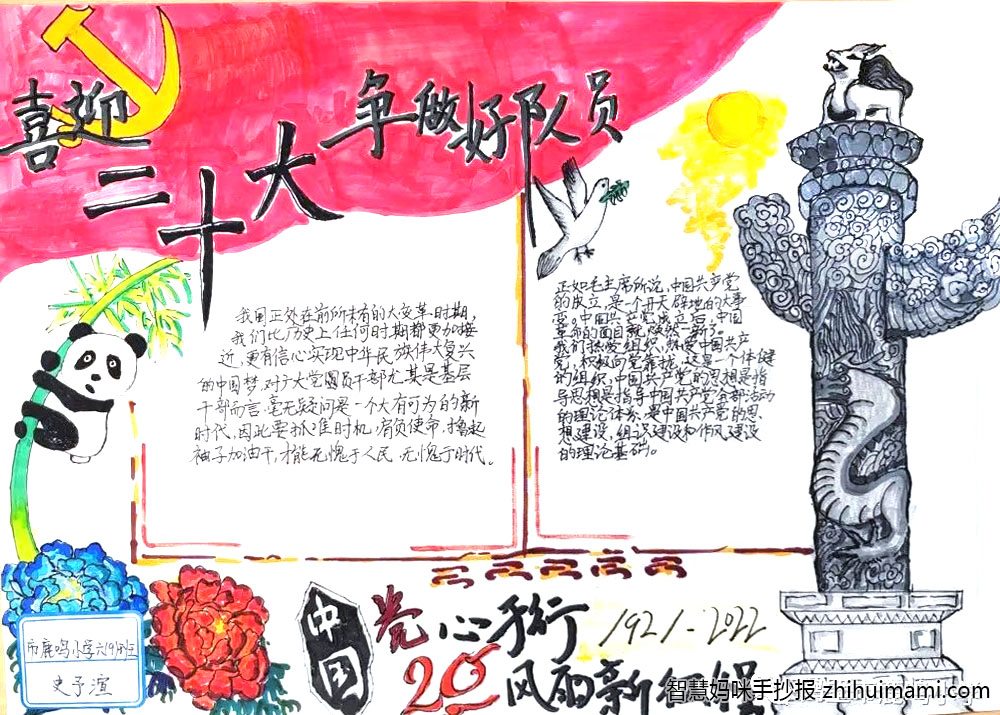 喜迎
二十大
争做好队员
我国正处在前所未有的大变革时期,
我们比历史上任何时期都更加接
近,更有信心实现中华民族伟大复兴
的中国梦.对广大党团员干部尤其是基层
干部而言.毫无疑问是一个大有可为的新
时代,因此要抓准时机,肩负使命.撸起
袖子加油干,才能无愧于人民.无愧于时代。
正如毛主席所说,中国共产党
的成立,是一个开天辟地的大事
变。中国共产党成立后,中国
革命的面目就焕然一新了。
我们热爱组织,热爱中国共产
党,积极向党靠拢,这是一个体健
的组织,中国共产党的思想是指
导思想是指导中国共产党全部活动
的理论体系.是中国共产党的思
想建设,组识建设和作风建设
的理论基础。
市鹿鸣小学六(9)班
史予渲
中国
党心
20
1921-2022
智慧妈咪手抄报 zhihuimami.com